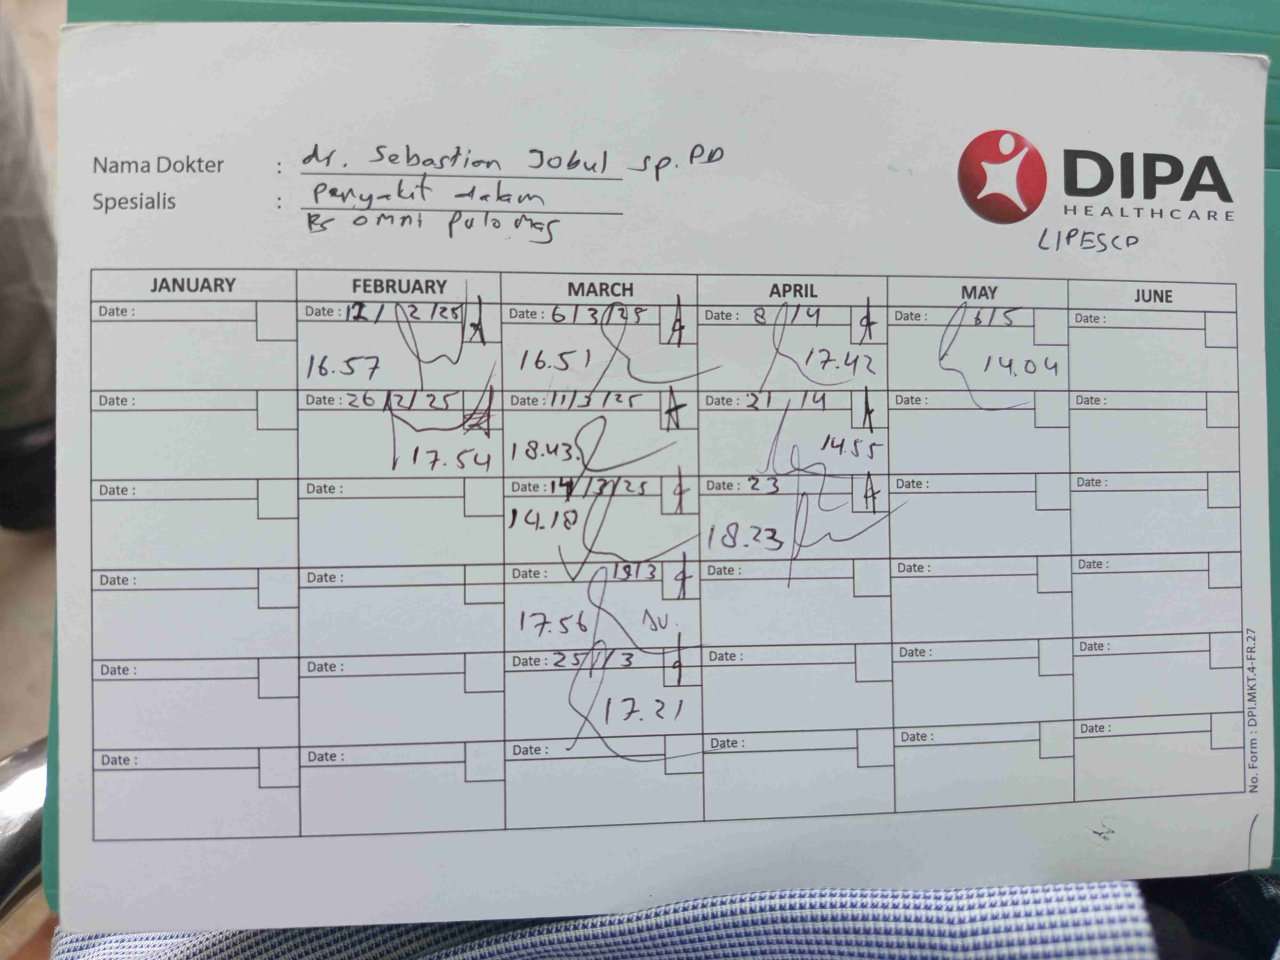 Nama Dokter : dr. Sebastian Jobul sp. PD
Spesialis : Penyakit dalam
RS OMNI Pulo Mas
DIPA
HEALTHCARE
LIPESCO
JANUARY FEBRUARY MARCH APRIL MAY JUNE
Date : Date : 12/2/25 Date : 6/3/25 Date : 8/4 Date : 6/5 Date :
16.57 16.51 17.42 14.04
Date : Date : 26/2/25 Date : 11/3/25 Date : 21/4 Date : Date :
17.54 18.43 14.55
Date : Date : Date : 14/3/25 Date : 23 Date : Date :
14.18 18.23
Date : Date : Date : 19/3 Date : Date : Date :
17.56
Date : Date : Date : 25/3 Date : Date : Date :
17.21
Date : Date : Date : Date : Date : Date :
No. Form : DPI.MKT.4-FR.27